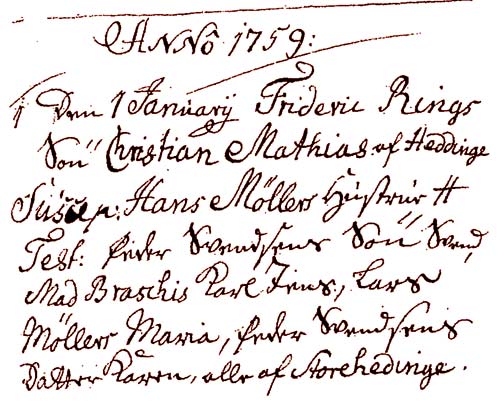 ANNô 1759:
1 Den 1 Januarij Frideric Rings
Søn Christian Mathias af Heddinge
Suscep: Hans Møllers Hustrue #
Test: Peder Svendsens Søn Svend,
Mad Braschis Karl Jens, Lars
Møllers Maria, Peder Svendsens
Datter Karen, alle af Storehedinge.